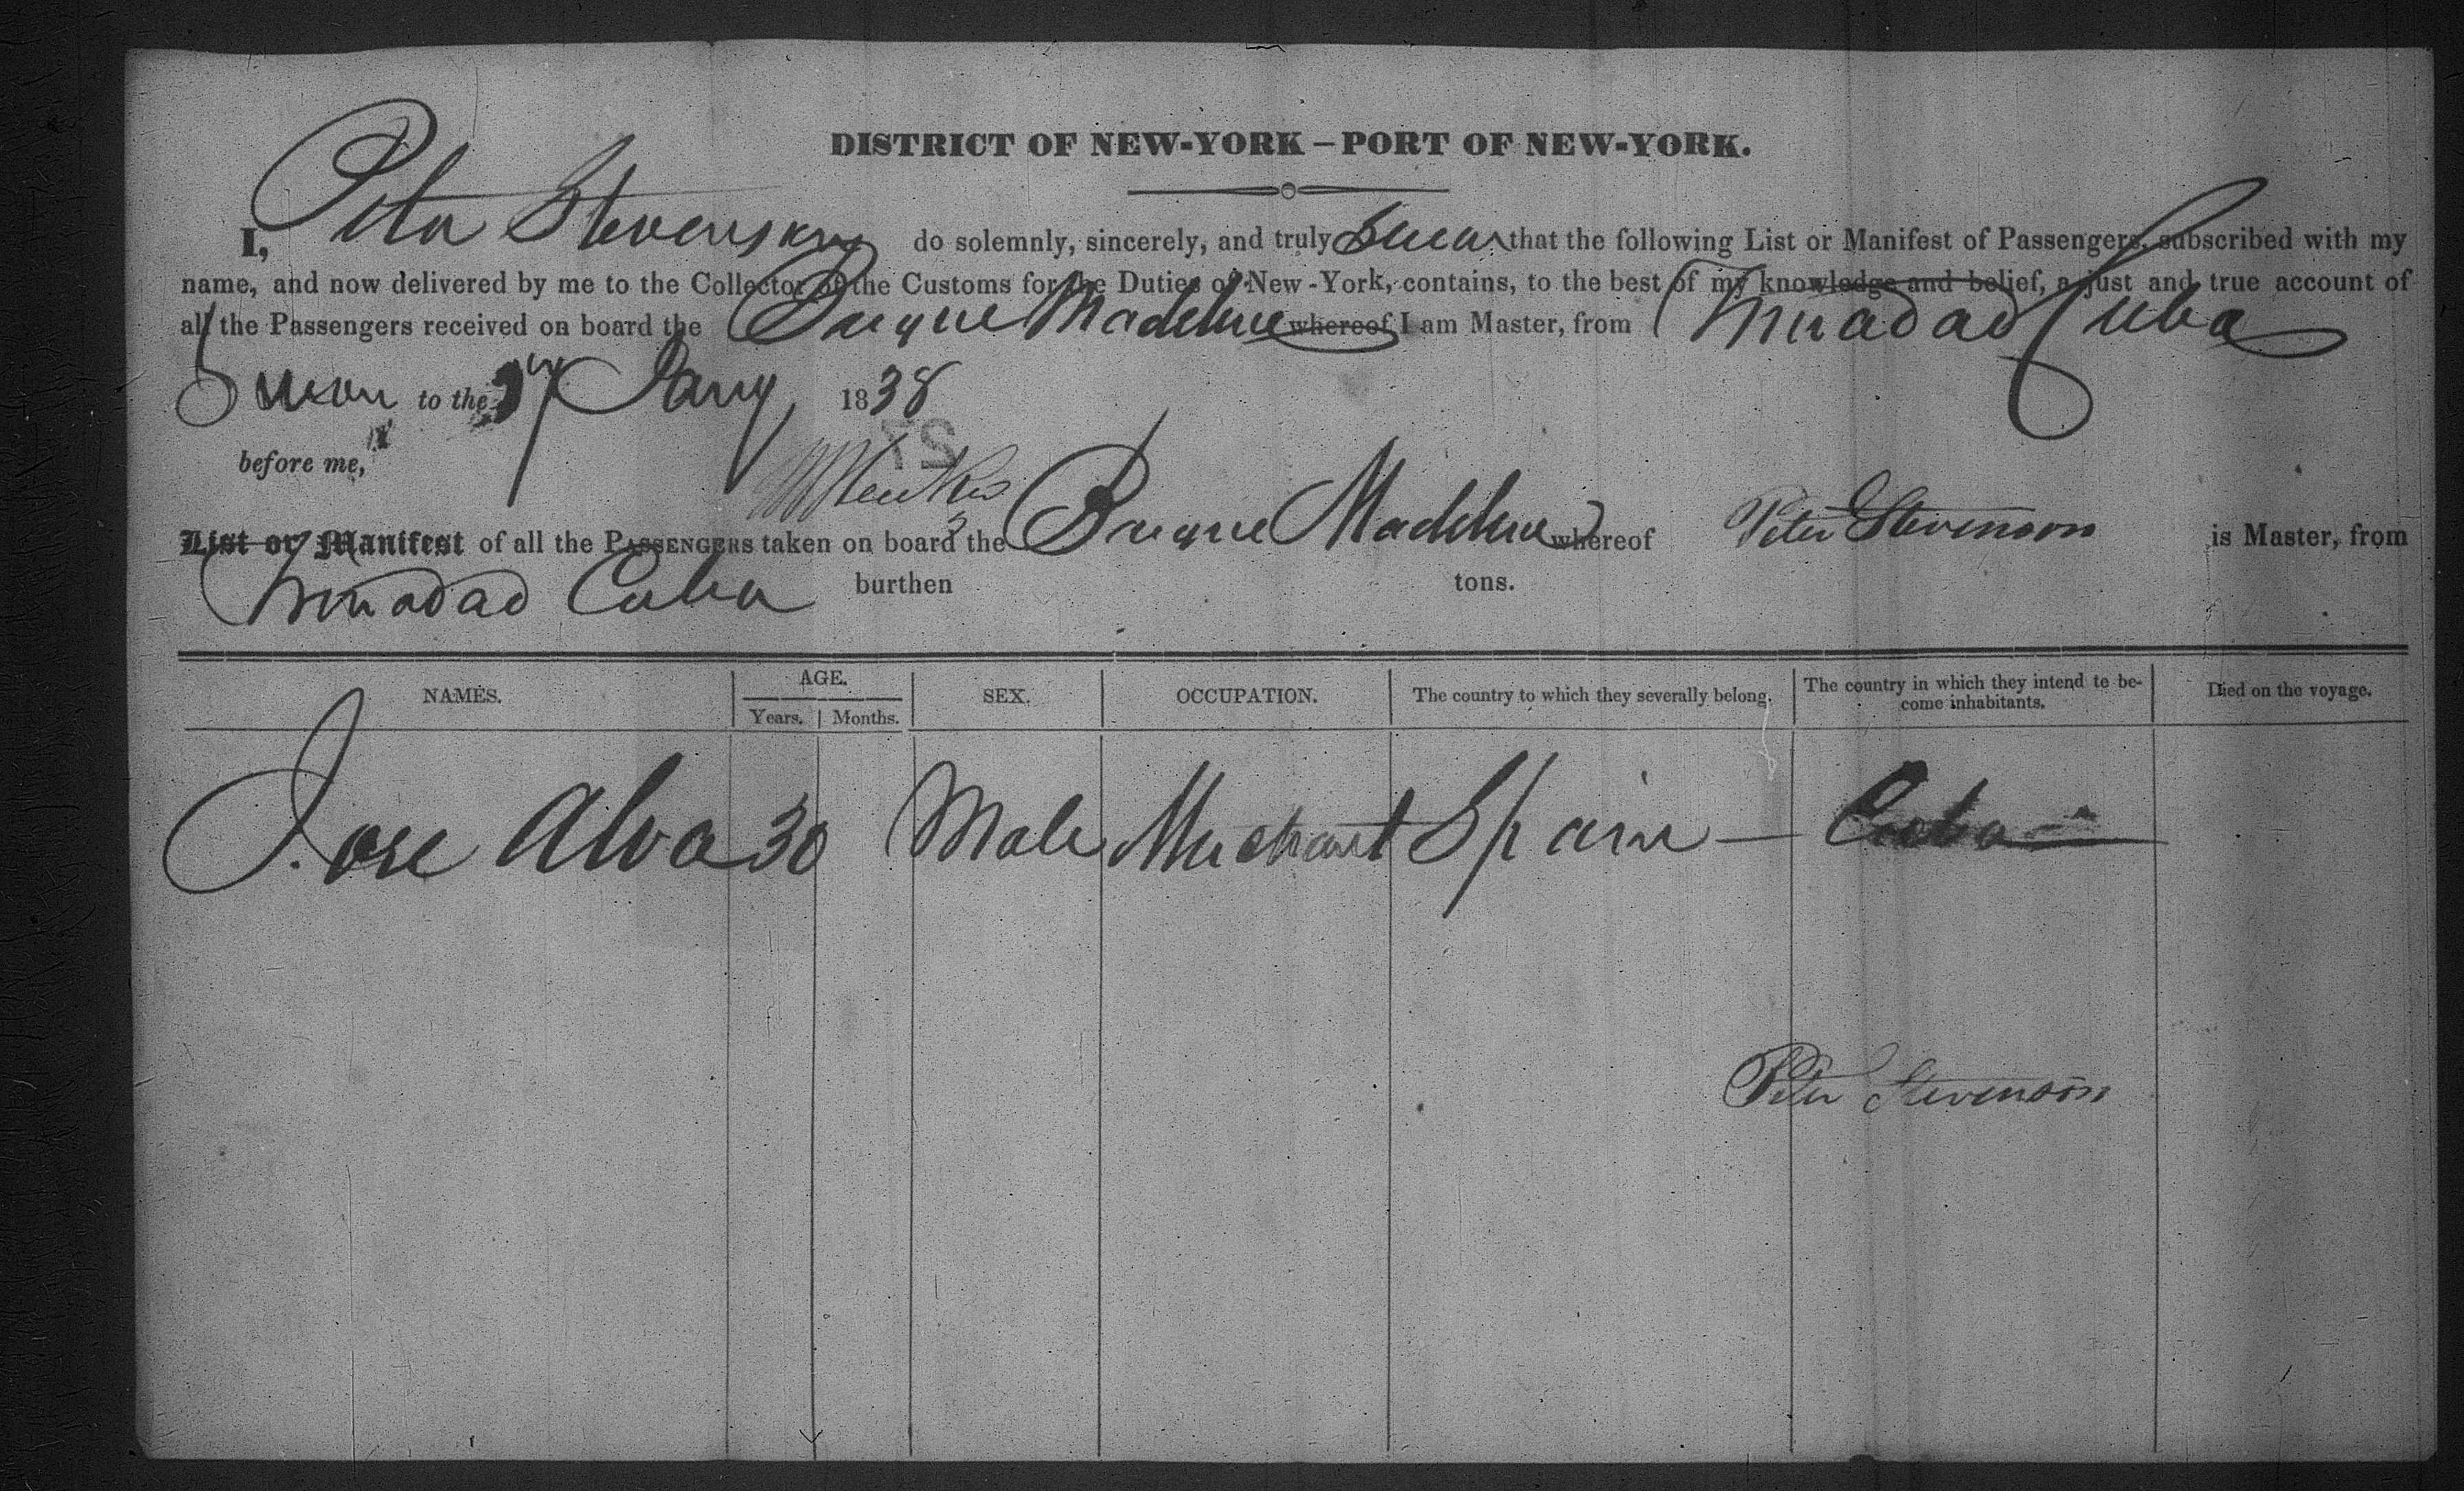 DISTRICT OF NEW-YORK – PORT OF NEW-YORK.
I, Peter Stevenson do solemnly, sincerely, and truly swear that the following List or Manifest of Passengers, subscribed with my
name, and now delivered by me to the Collector of the Customs for the Duties of New-York, contains, to the best of my knowledge and belief, a just and true account of
all the Passengers received on board the Barque Madeline whereof I am Master, from Trinadad Cuba
Sworn to the Jany 1838
before me,
List or Manifest of all the PASSENGERS taken on board the Barque Madeline whereof Peter Stevenson is Master, from
Trinadad Cuba burthen tons.
NAMES. AGE. SEX. OCCUPATION. The country to which they severally belong. The country in which they intend te be-
come inhabitants. Died on the voyage.
Years. Months.
Jose Alva 30 Male Merchant Spain — Cuba
Peter Stevenson